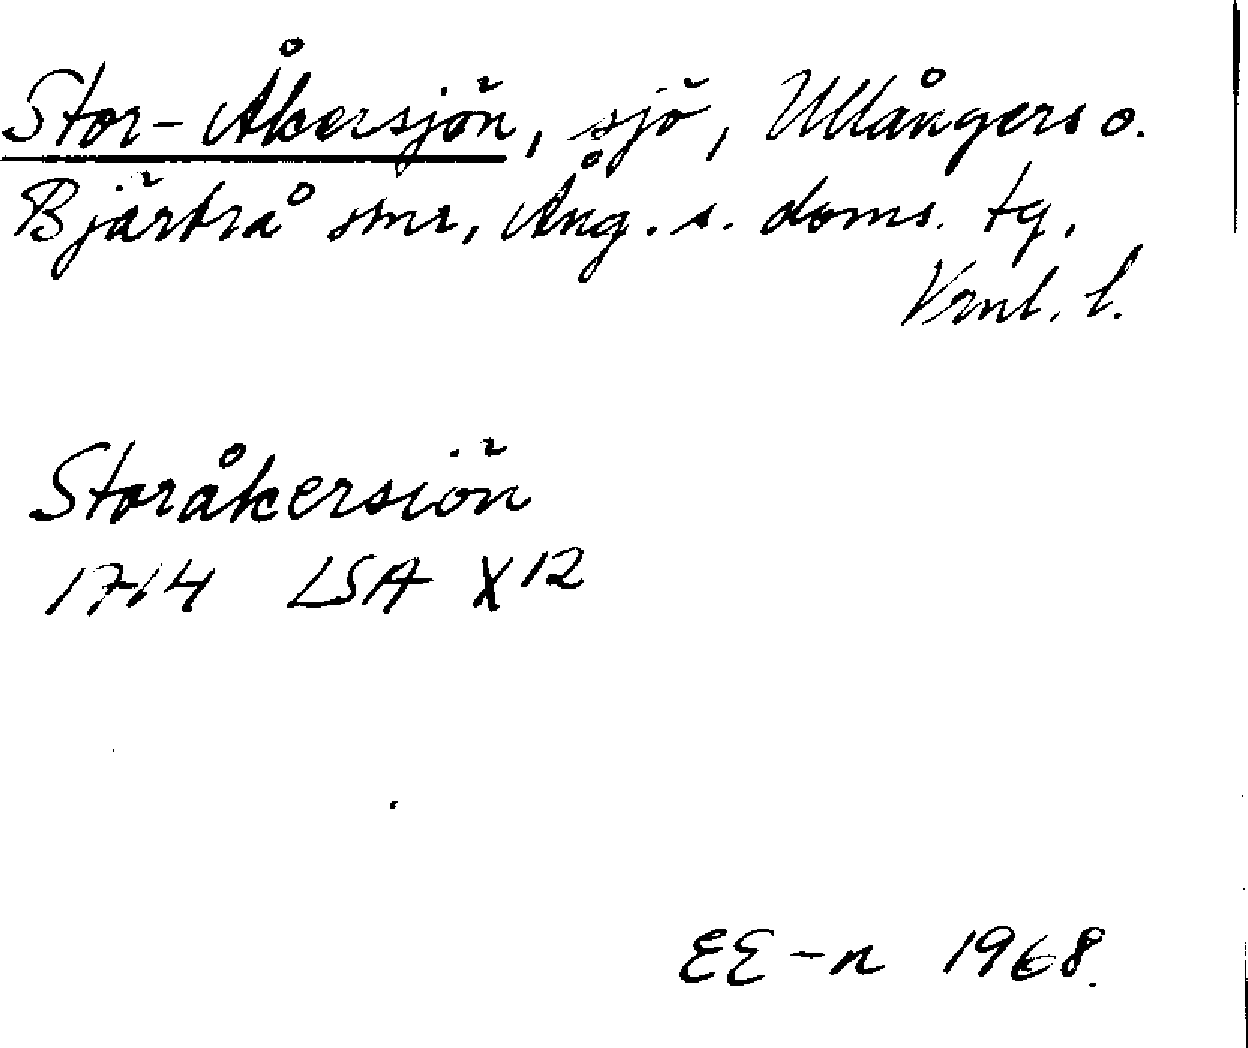 Stor-Åkersjön, sjö, Ullångers o.
Bjärtrå snr, Ång. s. doms. tg.
Vrnl. l.
Storåkersiön
1714 LSA X12
EE-n 1968.